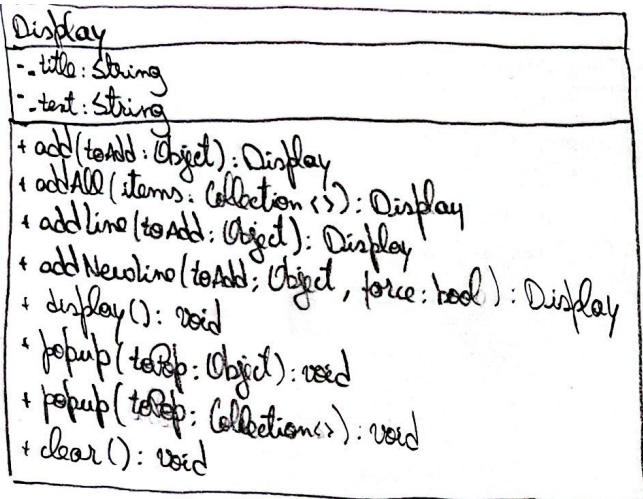 Display
- _title: String
- _text: String
+ add(toAdd: Object): Display
+ addAll(items: Collection<>): Display
+ addLine(toAdd: Object): Display
+ addNewline(toAdd: Object, force: bool): Display
+ display(): void
+ popup(toPop: Object): void
+ popup(toPop: Collection<>): void
+ clear(): void